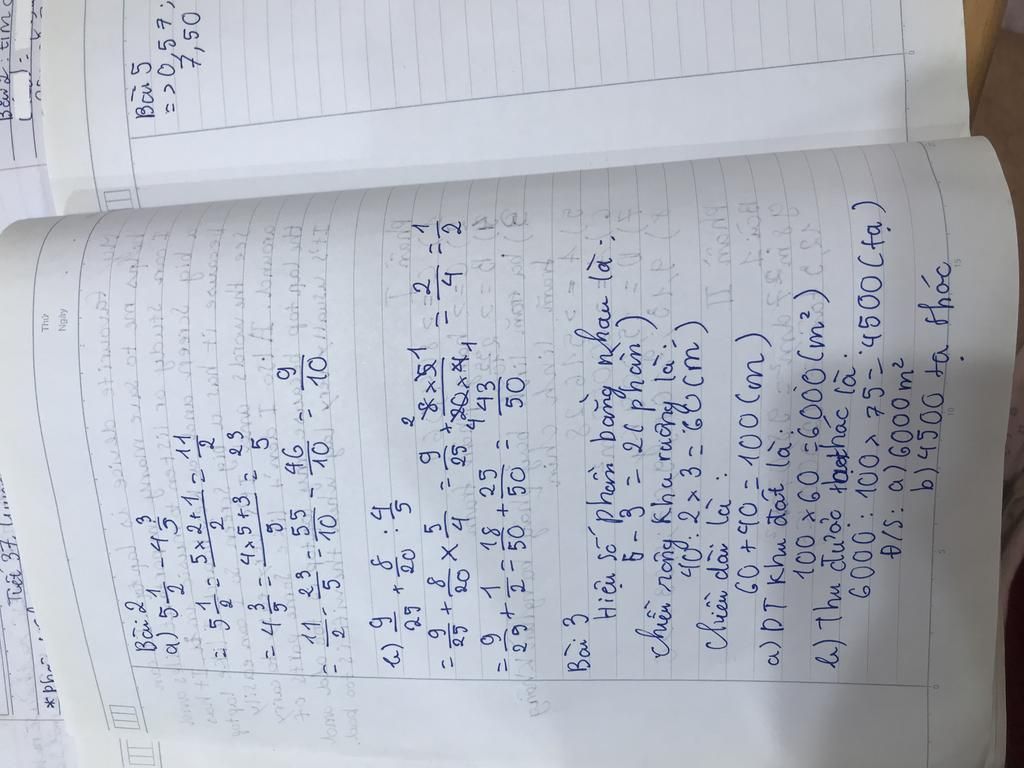 Thứ
Ngày
Bài 2
a) 5 1/2 - 4 3/5
= 5 1/2 = (5 x 2 + 1)/2 = 11/2
= 4 3/5 = (4 x 5 + 3)/5 = 23/5
= 11/2 - 23/5 = 55/10 - 46/10 = 9/10
b) 9/25 + 8/20 : 4/5
= 9/25 + 8/20 x 5/4 = 9/25 + (8 x 5)/(20 x 4) = 2/4 = 1/2
= 9/25 + 1/2 = 18/50 + 25/50 = 43/50
Bài 3
Hiệu số phần bằng nhau là:
5 - 3 = 2 (phần)
Chiều rộng khu ruộng là:
40 : 2 x 3 = 60 (m)
Chiều dài là:
60 + 40 = 100 (m)
a) DT khu đất là:
100 x 60 = 6000 (m²)
b) Thu được thóc là:
6000 : 100 x 75 = 4500 (tạ)
Đ/S: a) 6000 m²
b) 4500 tạ thóc
Bài 5
=> 0,57;
7,50